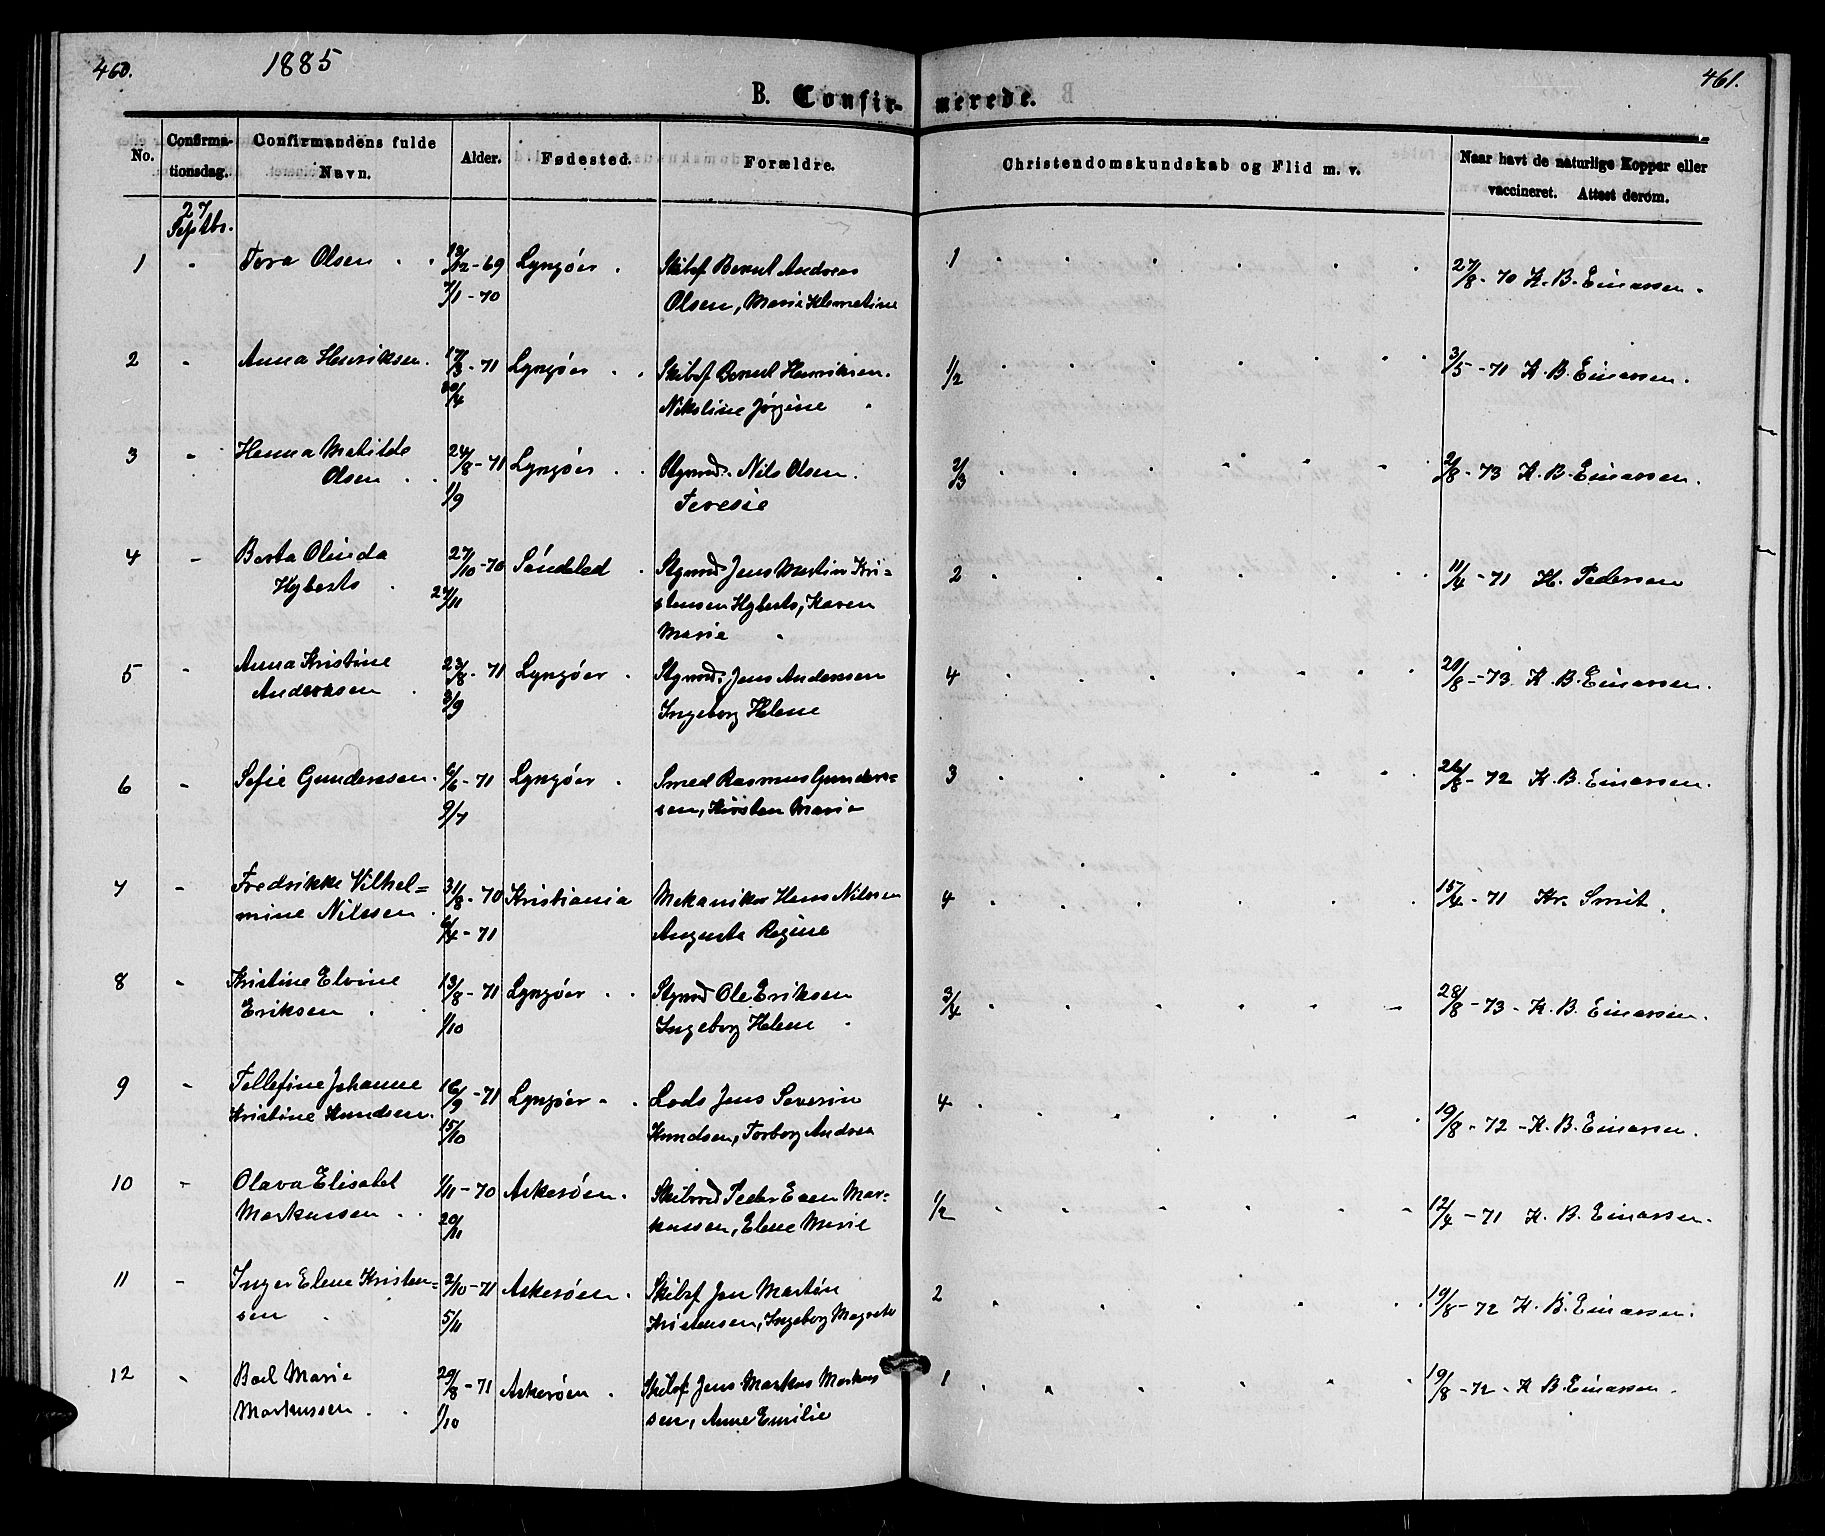 460.
1885
B. Confir-
merede.
461.
No.
Confirma-
tionsdag.
Confirmandens fulde
Navn.
Alder.
Fødested.
Forældre.
Christendomskundskab og Flid m. v.
Naar havt de naturlige Kopper eller
vaccineret. Attest derom.
27
Septbr.
1 " Tora Olsen 12-69 Lyngøer Skibsf Bernt Andreas 1 27/8-70 K. B. Einarssen.
7/1-70 Olsen, Marie Klemetine
2 " Anna Henriksen. 17/3-71 Lyngøer Skibsf Bernt Henriksen. 1/2 3/5-71 K. B. Einarssen.
/4 Nikoline Jørgine
3 " Hanna Matilde 24/8-71 Lyngøer Styrmd. Nils Olsen. 2/3 2/8-73 K. B. Einarssen.
Olsen 1/9 Teresie
4 " Berta Olinda 27/10-70 Søndeled Styrmd Jens Martin Kri- 2 11/4-71 H. Pedersen
Hyberts 27/11 stensen Hyberts, Karen
Marie
5 " Anna Kristine 23/8-71 Lyngøer Styrmd. Jens Anderssen 4 20/8-73 K. B. Einarssen.
Anderssen 3/9 Ingeborg Helene
6 " Sofie Gunderssen. 6/6-71 Lyngøer Smed Rasmus Gunders= 3 26/8-72 K. B. Einarssen.
9/7 sen, Kirsten Marie
7 " Fredrikke Vilhel= 31/8-70 Kristiania Mekaniker Hans Nilssen 4 15/4-71 Kr. Smit.
mine Nilssen 6/4-71 Augusta Regine
8 " Kristine Elvine 13/8-71 Lyngøer Styrmd Ole Eriksen 3/4 28/8-73- K. B. Einarssen.
Eriksen 1/10 Ingeborg Helene
9 " Tellefine Johanne 16/9-71 Lyngøer Lods Jens Severin 4 19/8-72-K. B. Einarssen.
Kristine Knudsen. 15/10 Knudsen, Torborg Andrea
10 " Olava Elisabet 1/11-70 Askerøen. Skibmd Peder Even Mar- 1/2 12/4-71 K. B. Einarssen.
Markussen 20/11 kussen, Elene Marie
11 " Inger Elene Kristen= 2/10-71 Askerøen. Skibsf Jen Martin 2 19/8-72 K. B. Einarssen.
sen 5/11 Kristensen, Ingeborg Magrete
12 " Boel Marie 20/8-71 Askerøen Skibsf Jens Markus Markus 1 19/8-72-K B. Einarssen.
Markussen 1/10 sen, Anne Emilie